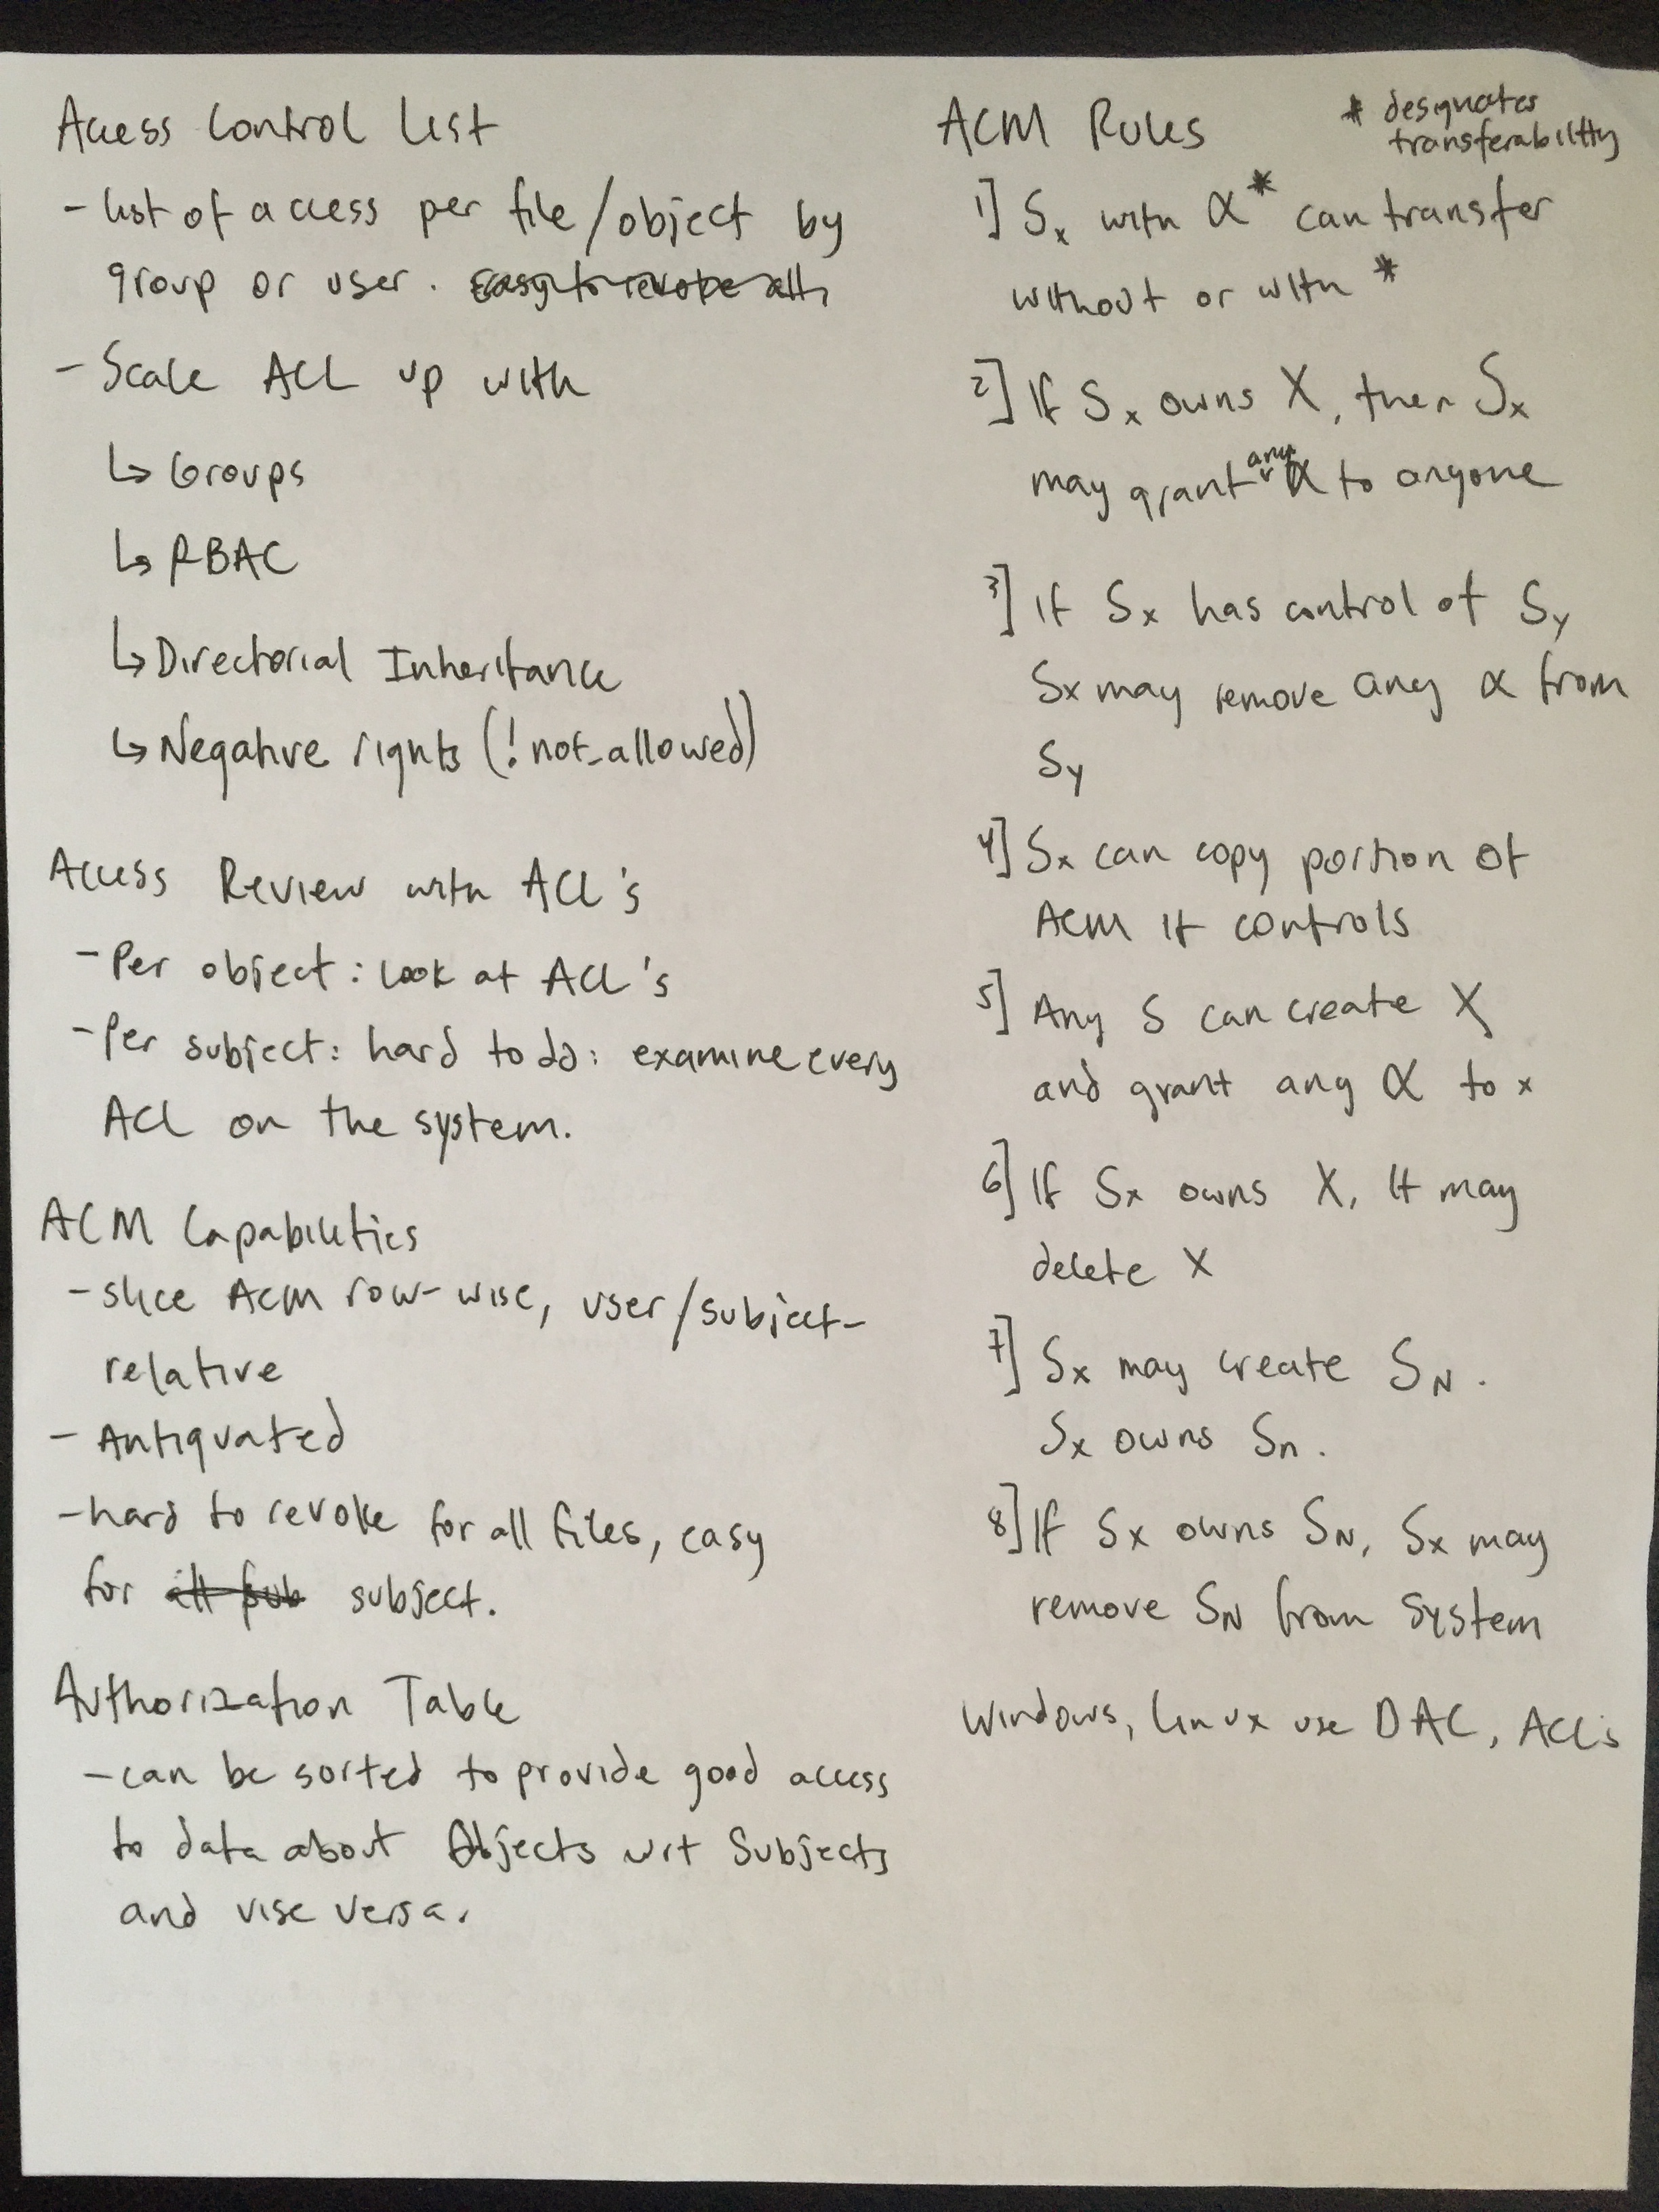 Access Control List
- list of access per file/object by
group or user. Easy to revoke all,
- Scale ACL up with
↳ Groups
↳ RBAC
↳ Directorial Inheritance
↳ Negative rights (! not_allowed)
Access Review with ACL's
- Per object: look at ACL's
- Per subject: hard to do: examine every
ACL on the system.
ACM Capabilities
- slice ACM row-wise, user/subject-
relative
- Antiquated
- hard to revoke for all files, easy
for all sub subject.
Authorization Table
- can be sorted to provide good access
to data about Objects wrt Subjects
and vise versa.
ACM Rules
* designates
transferability
1] Sx with α* can transfer
without or with *
2] If Sx owns X, then Sx
may grant any α to anyone
3] if Sx has control of Sy
Sx may remove any α from
Sy
4] Sx can copy portion of
ACM it controls
5] Any S can create X
and grant any α to x
6] If Sx owns X, it may
delete X
7] Sx may create SN.
Sx owns Sn.
8] If Sx owns SN, Sx may
remove SN from system
Windows, Linux use DAC, ACLs